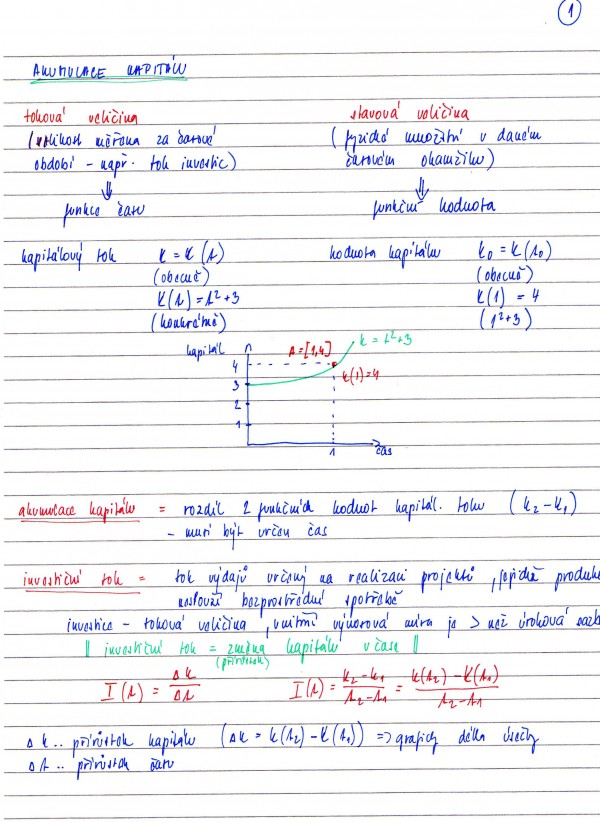 1
AKUMULACE KAPITÁLU
toková veličina
(velikost měřena za časové
období - např. tok investic)
⇓
funkce času
stavová veličina
(fyzické množství v daném
časovém okamžiku)
⇓
funkční hodnota
kapitálový tok K = K(t)
(obecně)
K(t) = t²+3
(konkrétně)
hodnota kapitálu K₀ = K(t₀)
(obecně)
K(1) = 4
(1²+3)
kapitál
A=[1,4]
K = t²+3
4
K(1)=4
3
2
1
1
čas
akumulace kapitálu = rozdíl 2 funkčních hodnot kapitál. toku (K₂-K₁)
- musí být určen čas
investiční tok = tok výdajů určený na realizaci projektů, jejichž
neslouží bezprostřední spotřebě
investice - toková veličina, vnitřní výnosová míra je > než úroková
|| investiční tok = změna kapitálu v čase ||
(přírůstek)
I(t) = ΔK/Δt I(t) = K₂-K₁/t₂-t₁ = K(t₂)-K(t₁)/t₂-t₁
ΔK .. přírůstek kapitálu (ΔK = K(t₂)-K(t₁)) => graficky délka úsečky
Δt .. přírůstek času